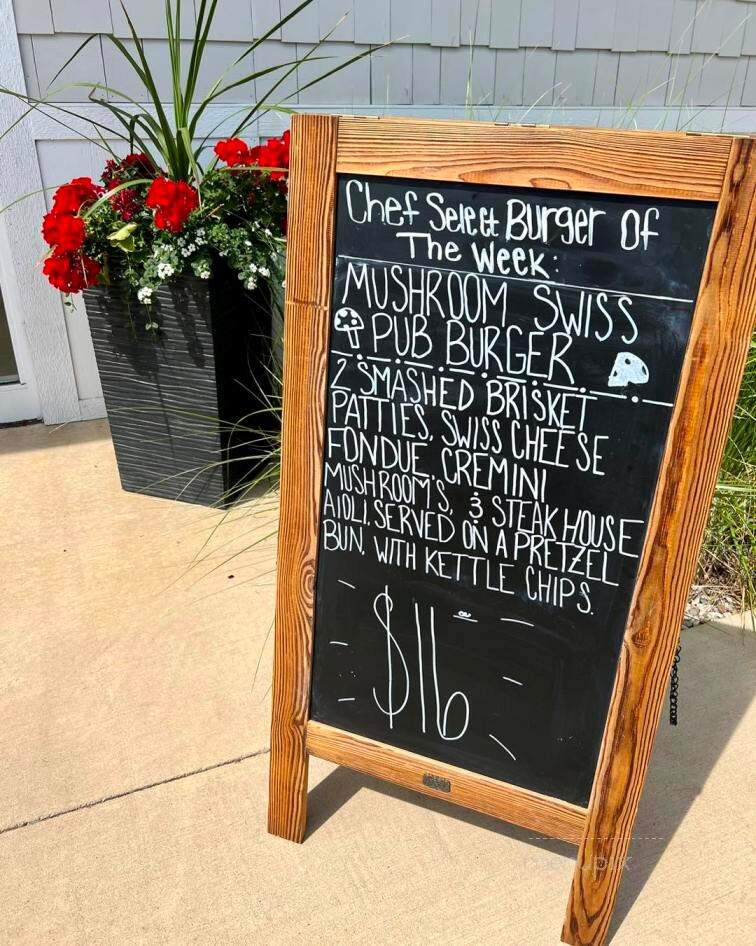 Chef Select Burger Of
The Week:
MUSHROOM SWISS
PUB BURGER
2 SMASHED BRISKET
PATTIES, SWISS CHEESE
FONDUE, CREMINI
MUSHROOM'S, & STEAKHOUSE
AIOLI. SERVED ON A PRETZEL
BUN. WITH KETTLE CHIPS.
$16